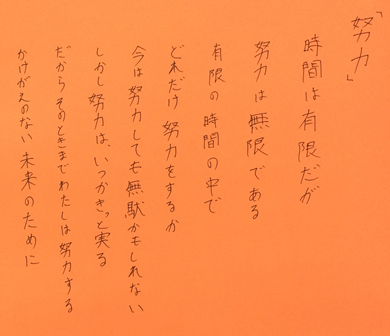 「努力」
時間は有限だが
努力は無限である
有限の時間の中で
どれだけ努力をするか
今は努力しても無駄かもしれない
しかし努力は、いつかきっと実る
だからそのときまでわたしは努力する
かけがえのない未来のために